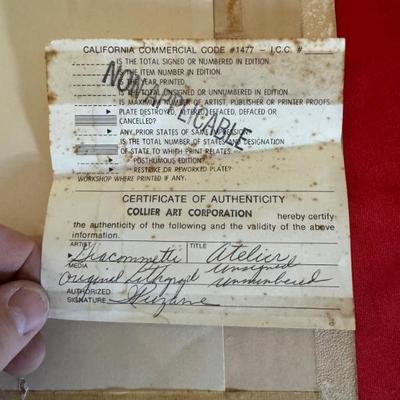 CALIFORNIA COMMERCIAL CODE #1477 – I.C.C. #
IS THE TOTAL SIGNED OR NUMBERED IN EDITION.
THE ITEM NUMBER IN EDITION.
IS THE YEAR PRINTED.
IS THE TOTAL UNSIGNED OR UNNUMBERED IN EDITION.
IS MAXIMUM NUMBER OF ARTIST, PUBLISHER OR PRINTER PROOFS
PLATE DESTROYED, ALTERED, EFFACED, DEFACED OR
CANCELLED?
ANY PRIOR STATES OF SAME IMPRESSION
IS THE TOTAL NUMBER OF STATES AND DESIGNATION
OF STATE TO WHICH PRINT RELATES.
POSTHUMOUS EDITION?
RESTRIKE OR REWORKED PLATE?
WORKSHOP WHERE PRINTED IF ANY.
NOT APPLICABLE
CERTIFICATE OF AUTHENTICITY
COLLIER ART CORPORATION hereby certify
the authenticity of the following and the validity of the above
information.
ARTIST Giacommetti TITLE Atelier
MEDIA Original Lithograph unsigned unnumbered
AUTHORIZED
SIGNATURE